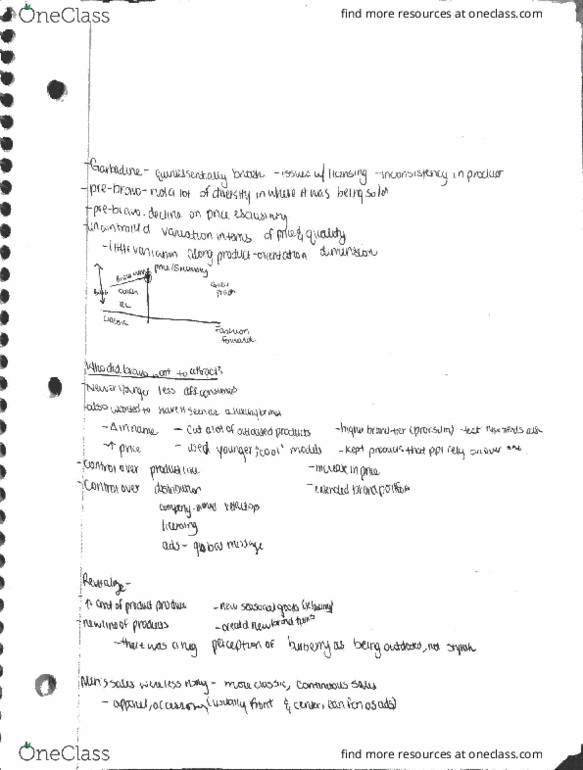 OneClass
find more resources at oneclass.com
- Garbadine - quintessentially british - issues w/ licensing - inconsistency in product
- pre-bravo - not a lot of diversity in where it was being sold
- pre-bravo - decline on price exclusivity
- uncontrolled variation in terms of price & quality
- little variation along product-orientation dimension
price/exclusivity
Coach
RL
Classic
Fashion
Forward
Who did bravo want to attract?
- Newer younger less aff consumers
- also wanted to have it seen as a luxury brand
- Δ in name - cut a lot of outdated products - higher brand-tier (prorsum) - test new trends
- ↑ price - used younger, "cool" models - kept products that ppl rely on over
- control over product line - increase in price
- control over distribution - extended brand portfolio
company-owned
licensing
ads - global message
Revitalize -
- ↑ amt of product produce - new seasonal goods
- new line of products - created new brand tiers
- there was a neg perception of burberry as being outdated, not stylish
- Men's sales were less risky - more classic, continuous sales
- apparel, accessory (usually front & center, can fcn as ads)
OneClass
find more resources at oneclass.com